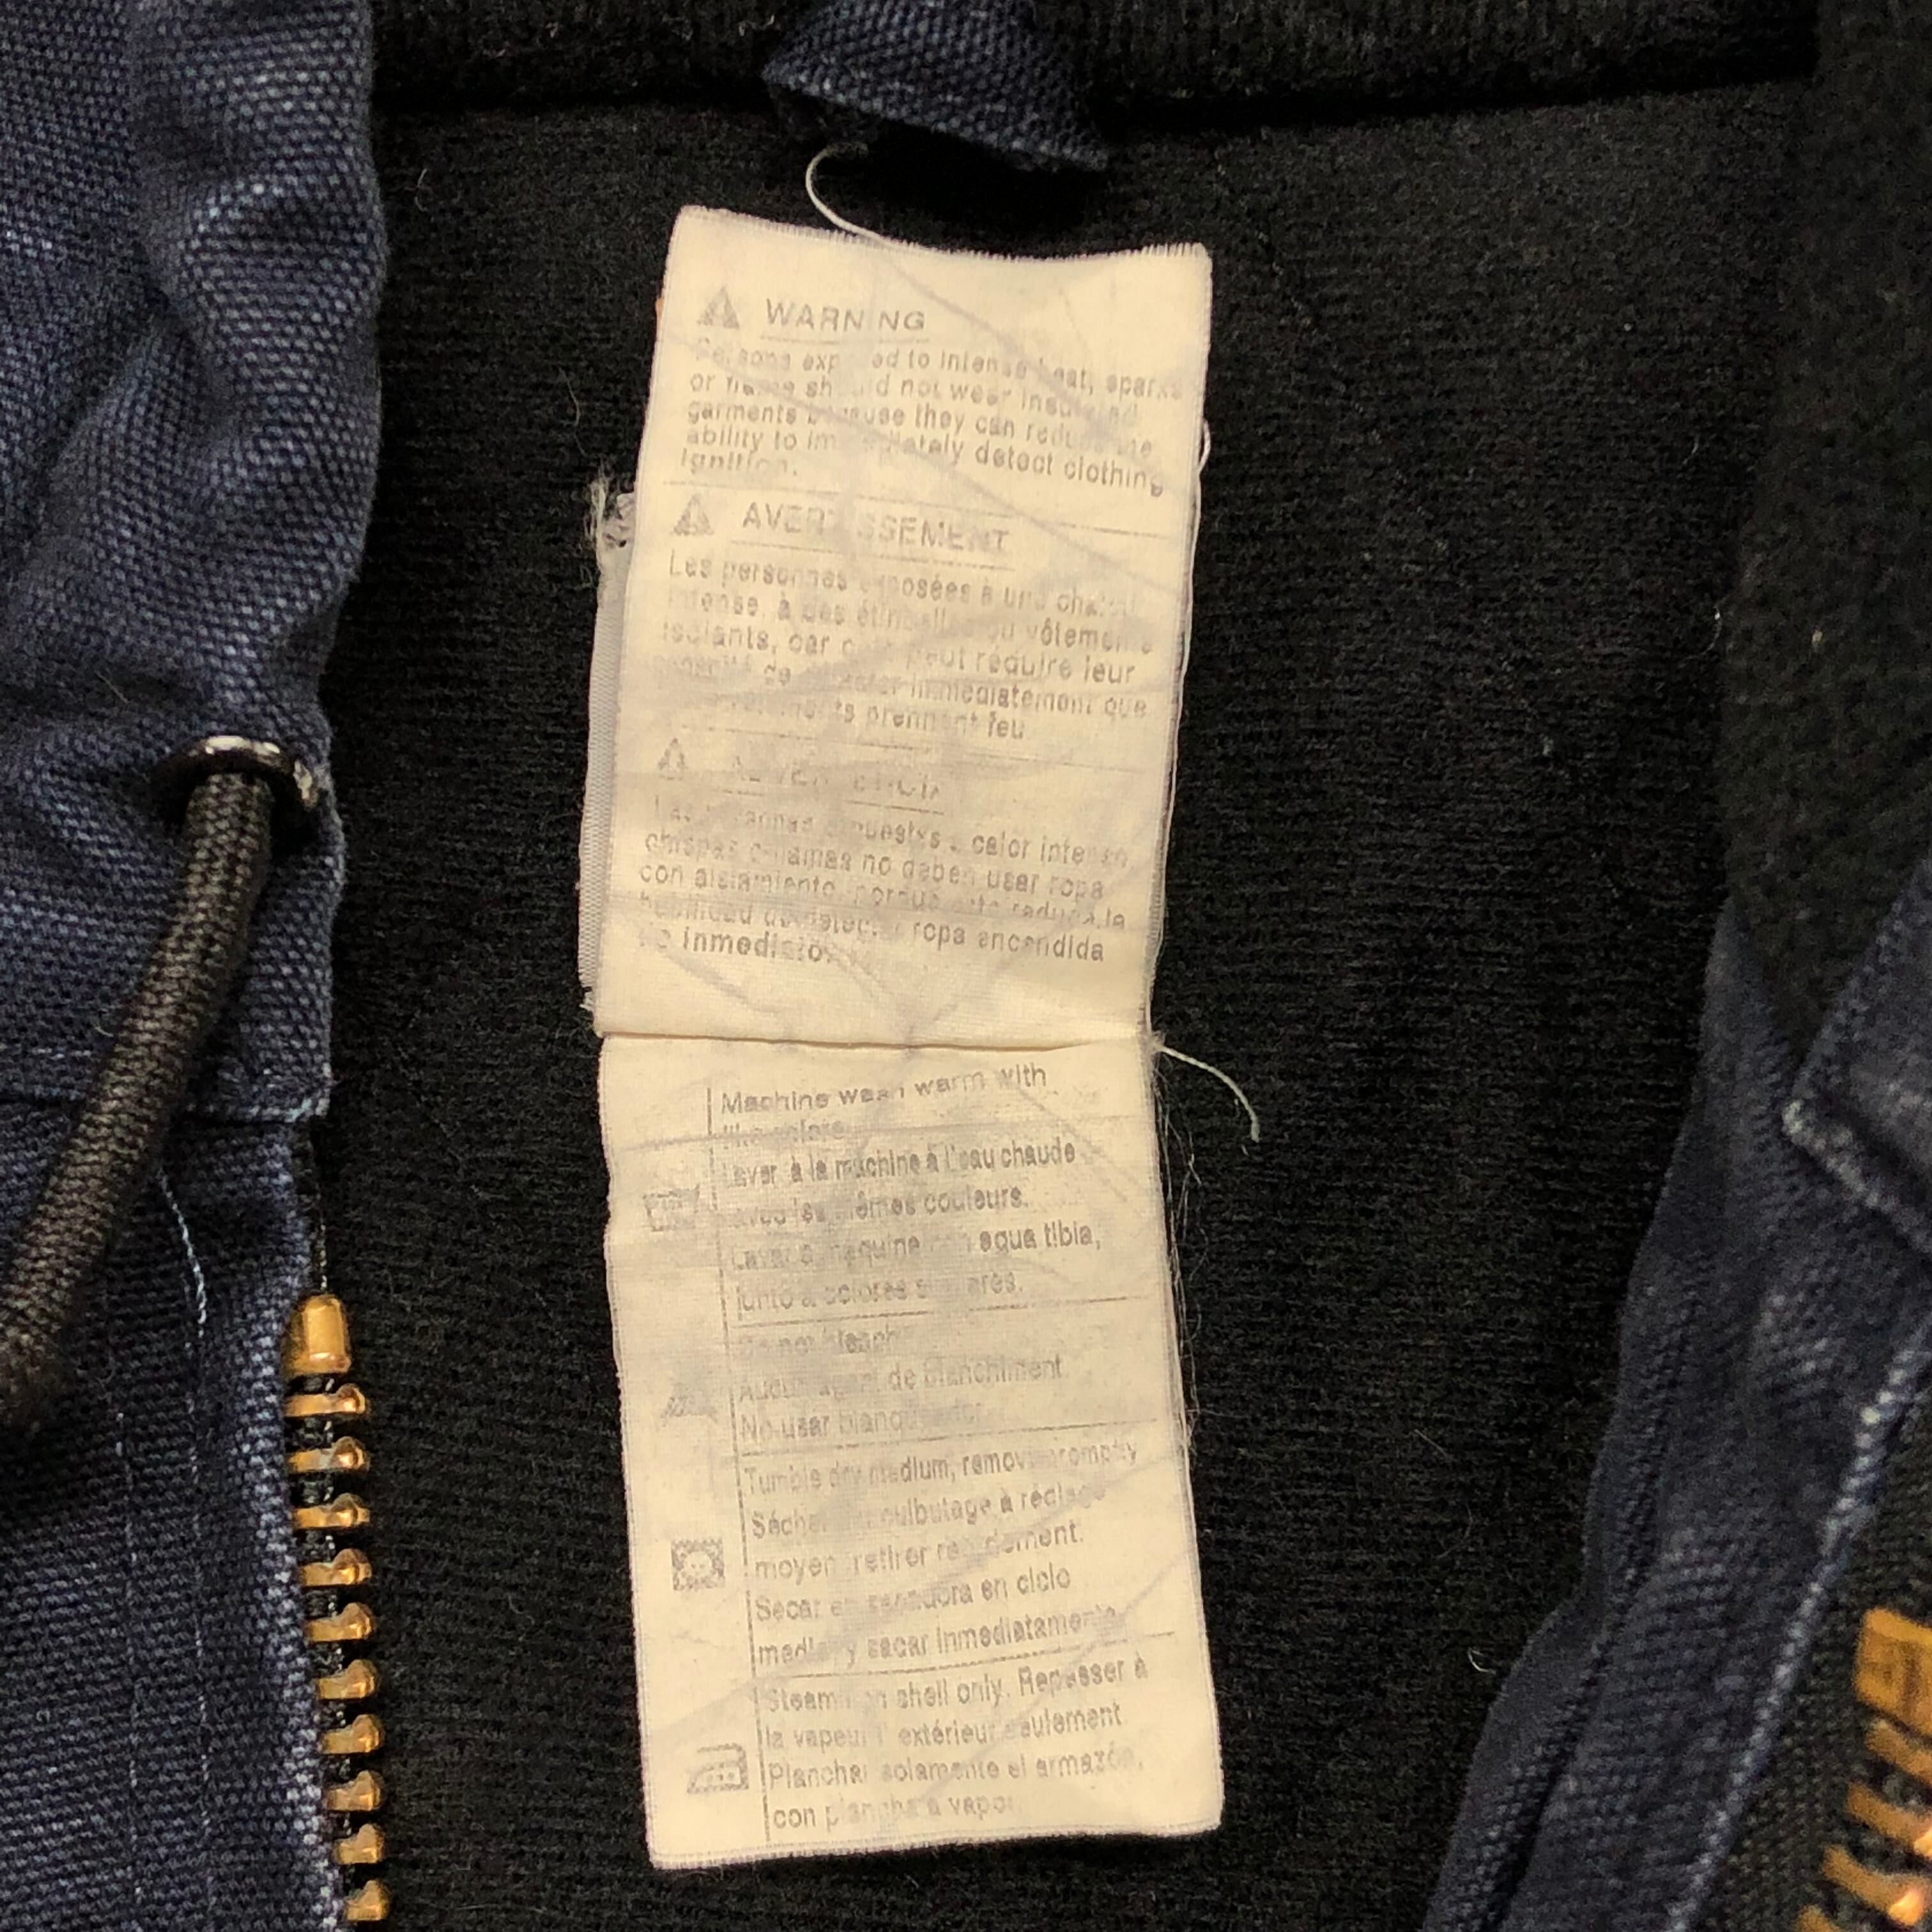 WARNING
Persons exposed to intense heat, sparks
or flame should not wear insulated
garments because they can reduce the
ability to immediately detect clothing
ignition.
AVERTISSEMENT
Les personnes exposées à une chaleur
intense, à des étincelles ou vêtements
isolants, car peut réduire leur
de immédiatement que
prennent feu
calor intenso,
chispas o llamas no deben usar ropa
con aislamiento, porque esto reduce la
habilidad de detectar ropa encendida
de inmediato.
Machine wash warm with
like colors.
Laver à la machine à l'eau chaude
avec les mêmes couleurs.
Lavar a maquina con agua tibia,
junto a colores similares.
Do not bleach
Aucun agent de blanchiment.
No usar blanqueador
Tumble dry medium, remove promptly
Sécher culbutage à réglage
moyen retirer rapidement.
Secar en secadora en ciclo
medio y sacar inmediatamente.
Steam iron shell only. Repasser à
la vapeur l'extérieur seulement
Planchar solamente el armazón,
con plancha a vapor.